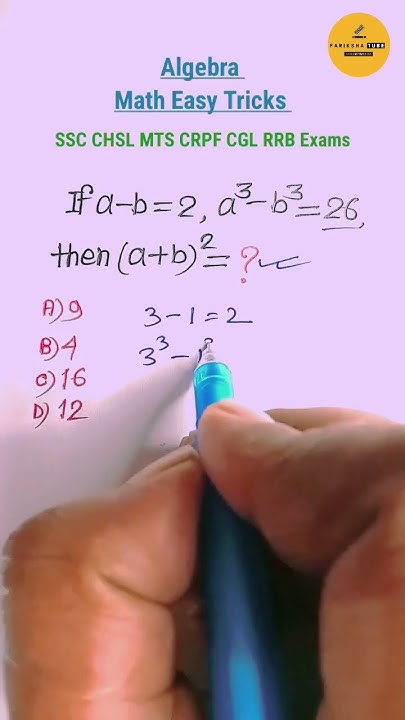 PARIKSHA TUBE
Algebra
Math Easy Tricks
SSC CHSL MTS CRPF CGL RRB Exams
If a-b=2, a³-b³=26,
then (a+b)²=?
A) 9
3-1=2
B) 4
3³-1³
C) 16
D) 12